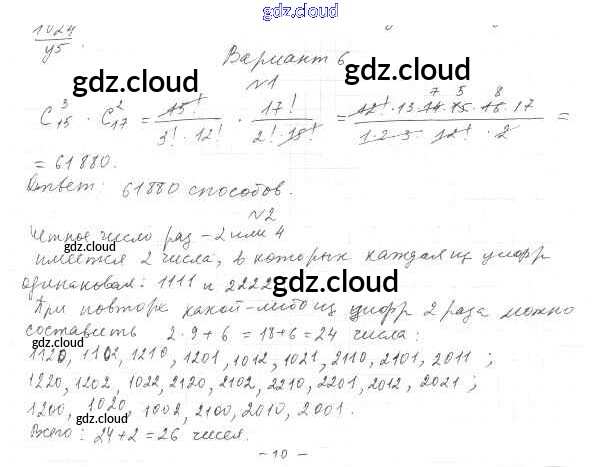 gdz.cloud
1024
45.
Вариант 6
gdz.cloud
№1
C³₁₅ · C²₁₇ = 15! / 3! · 12! · 17! / 2! · 15! = 12! · 13 · 14 · 15 · 16 · 17 / 1 · 2 · 3 · 12! · 2 =
7 5 8
= 61880.
gdz.cloud
Ответ: 61880 способов.
№2
Четное число раз – 2 или 4
gdz.cloud
имеется 2 числа, в которых каждая из цифр
одинаковая: 1111 и 2222
gdz.cloud
При повторе какой-либо из цифр 2 раза можно
составить 2 · 9 + 6 = 18 + 6 = 24 числа:
gdz.cloud
1120, 1102, 1210, 1201, 1012, 1021, 2110, 2101, 2011;
1220, 1202, 1022, 2120, 2102, 2210, 2201, 2012, 2021;
1200, 1020, 1002, 2100, 2010, 2001.
gdz.cloud
Всего: 24 + 2 = 26 чисел.
– 10 –
gdz.cloud